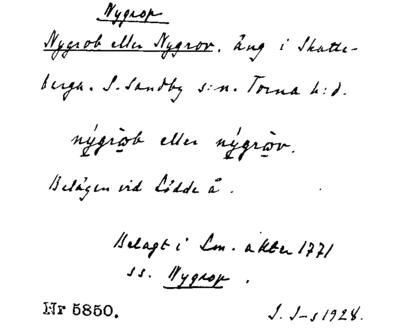 Nygrop
Nygrob eller Nygrov. äng i Skatte-
berga. S. Sandby s:n. Torna h:d.
nýgrob eller nýgrov.
Belägen vid Lödde å.
Belagt i Lm. akter 1771
ss. Nygrop.
Nr 5850. J. I-s 1928.